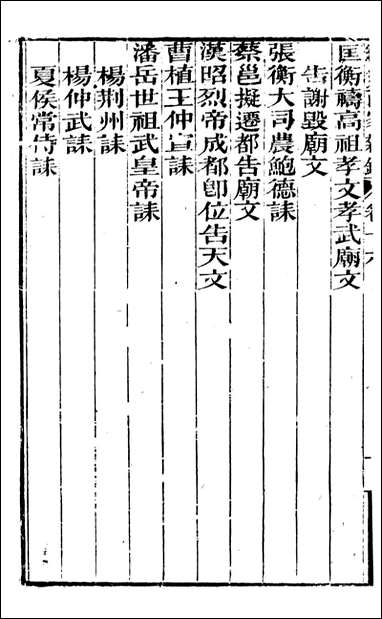 匡衡禱高祖孝文孝武廟文
告謝毀廟文
張衡大司農鮑德誄
蔡邕擬遷都告廟文
漢昭烈帝成都卽位告天文
曹植王仲宣誄
潘岳世祖武皇帝誄
楊荆州誄
楊仲武誄
夏侯常侍誄